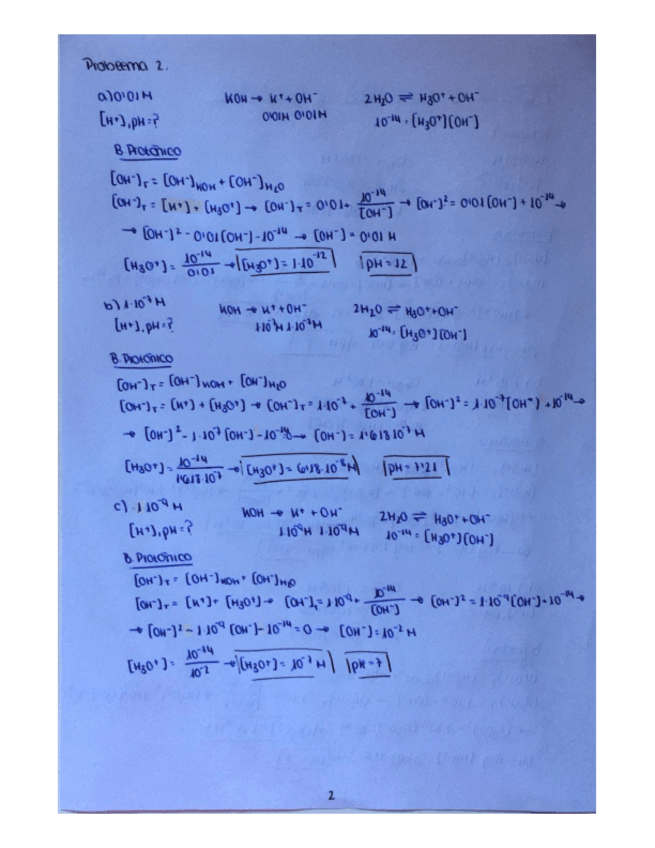 Problema 2.
a) 0'01 M KOH → K⁺ + OH⁻ 2H₂O ⇌ H₃O⁺ + OH⁻
[H⁺], pH = ? 0'01M 0'01M 10⁻¹⁴ = [H₃O⁺][OH⁻]
B. Protónico
[OH⁻]T = [OH⁻]KOH + [OH⁻]H₂O
[OH⁻]T = [K⁺] + [H₃O⁺] → [OH⁻]T = 0'01 + 10⁻¹⁴/[OH⁻] → [OH⁻]² = 0'01[OH⁻] + 10⁻¹⁴ →
→ [OH⁻]² - 0'01[OH⁻] - 10⁻¹⁴ → [OH⁻] = 0'01 M
[H₃O⁺] = 10⁻¹⁴/0'01 → [H₃O⁺] = 1·10⁻¹² pH = 12
b) 1·10⁻⁷ M KOH → K⁺ + OH⁻ 2H₂O ⇌ H₃O⁺ + OH⁻
[H⁺], pH = ? 1·10⁻⁷M 1·10⁻⁷M 10⁻¹⁴ = [H₃O⁺][OH⁻]
B. Protónico
[OH⁻]T = [OH⁻]KOH + [OH⁻]H₂O
[OH⁻]T = [K⁺] + [H₃O⁺] → [OH⁻]T = 1·10⁻⁷ + 10⁻¹⁴/[OH⁻] → [OH⁻]² = 1·10⁻⁷[OH⁻] + 10⁻¹⁴ →
→ [OH⁻]² - 1·10⁷ [OH⁻] - 10⁻¹⁴ → [OH⁻] = 1'618·10⁻⁷ M
[H₃O⁺] = 10⁻¹⁴/1'618·10⁻⁷ → [H₃O⁺] = 6'18·10⁻⁸ M pH = 7'21
c) 1·10⁻⁹ M KOH → K⁺ + OH⁻ 2H₂O ⇌ H₃O⁺ + OH⁻
[H⁺], pH = ? 1·10⁻⁹M 1·10⁻⁹M 10⁻¹⁴ = [H₃O⁺][OH⁻]
B. Protónico
[OH⁻]T = [OH⁻]KOH + [OH⁻]H₂O
[OH⁻]T = [K⁺] + [H₃O⁺] → [OH⁻]T = 1·10⁻⁹ + 10⁻¹⁴/[OH⁻] → [OH⁻]² = 1·10⁻⁹[OH⁻] + 10⁻¹⁴ →
→ [OH⁻]² - 1·10⁻⁹ [OH⁻] - 10⁻¹⁴ = 0 → [OH⁻] = 10⁻² M
[H₃O⁺] = 10⁻¹⁴/10⁻² → [H₃O⁺] = 10⁻⁷ M pH = 7
2